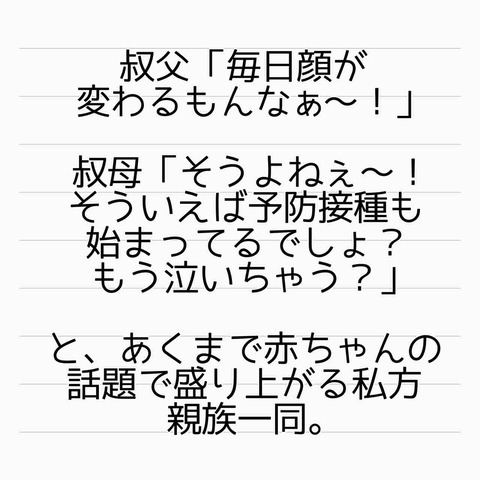 叔父「毎日顔が
変わるもんなぁ〜！」
叔母「そうよねぇ〜！
そういえば予防接種も
始まってるでしょ？
もう泣いちゃう？」
と、あくまで赤ちゃんの
話題で盛り上がる私方
親族一同。